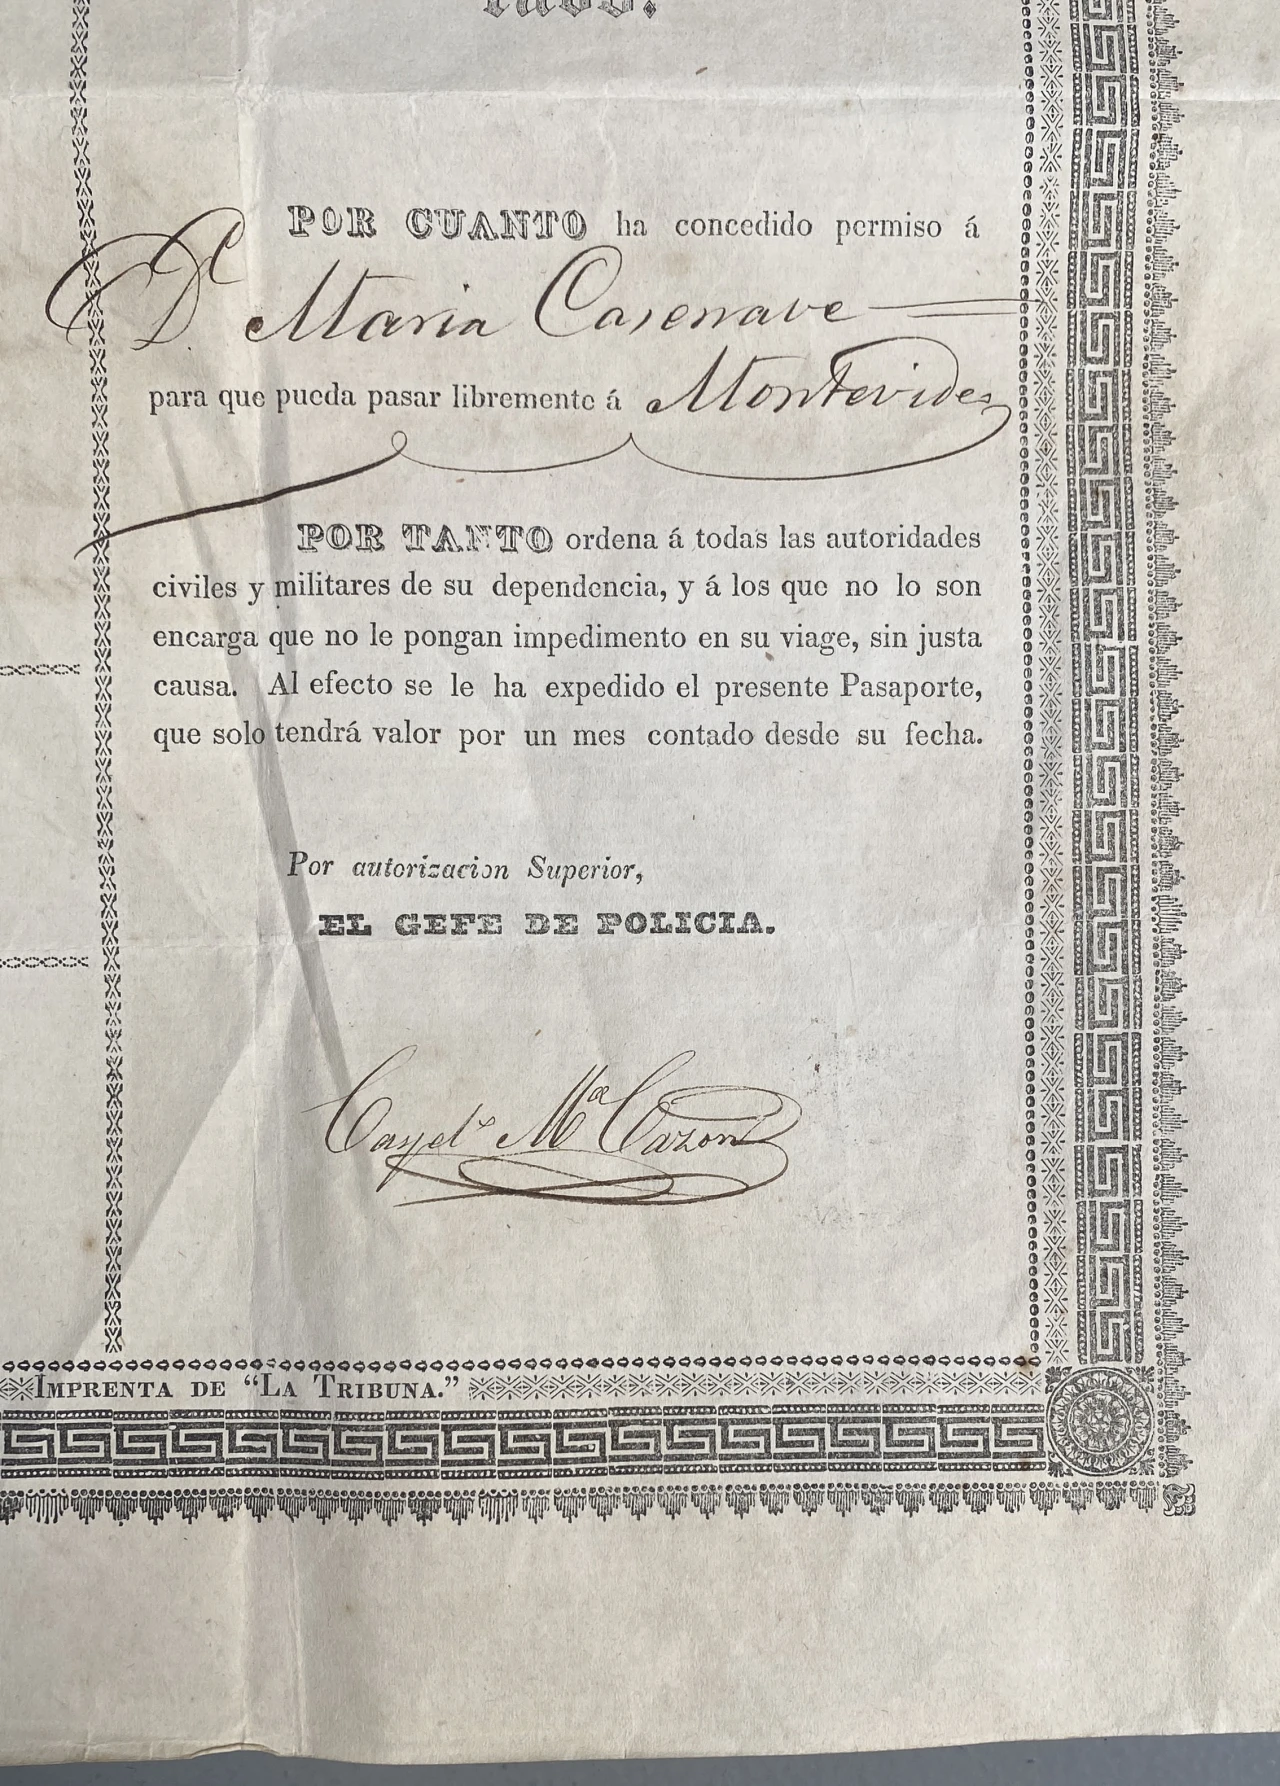 POR CUANTO ha concedido permiso á
Dª. Maria Casenave
para que pueda pasar libremente á Montevideo
POR TANTO ordena á todas las autoridades
civiles y militares de su dependencia, y á los que no lo son
encarga que no le pongan impedimento en su viage, sin justa
causa. Al efecto se le ha expedido el presente Pasaporte,
que solo tendrá valor por un mes contado desde su fecha.
Por autorizacion Superior,
EL GEFE DE POLICIA.
Cayetº Mª Cazon
IMPRENTA DE "LA TRIBUNA."